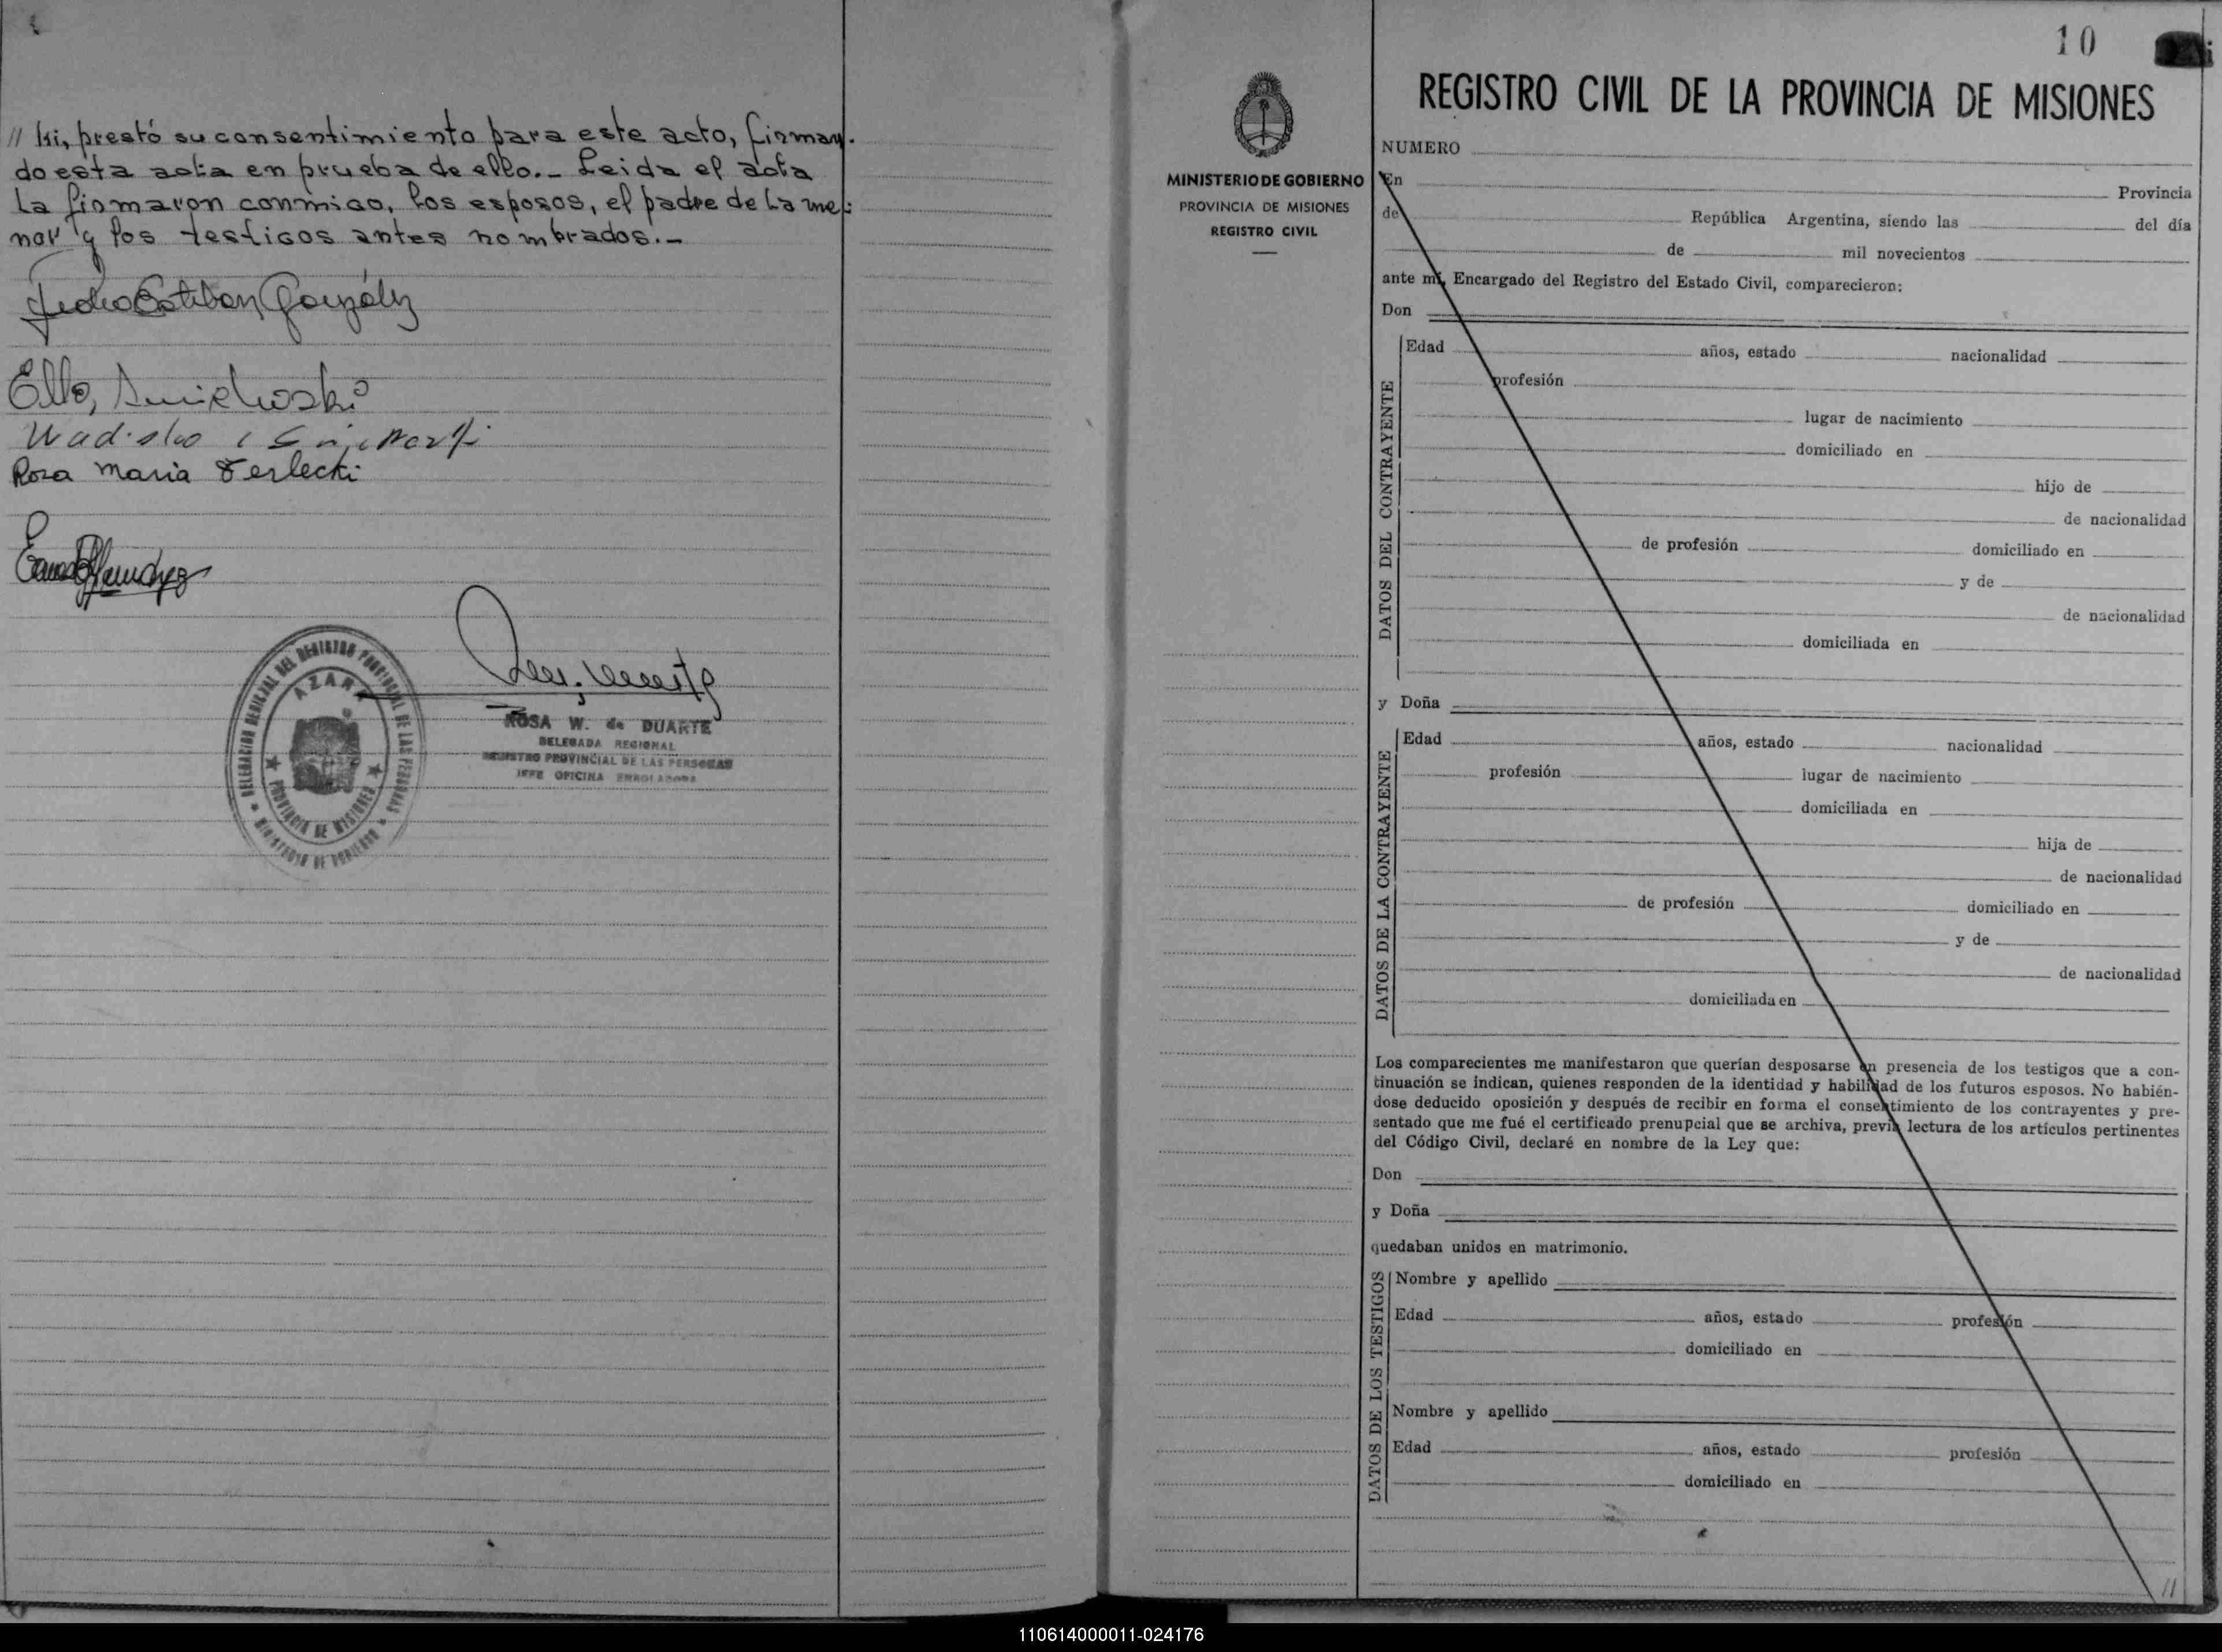 // ki, prestó su consentimiento para este acto, firman-
do esta acta en prueba de ello.- Leida el acta
la firmaron conmigo, los esposos, el padre de la me-
nor y los testigos antes nombrados.-
Pedro Esteban González
Rosa Maria Terlecki
AZARA
PROVINCIA DE MISIONES
ROSA W. de DUARTE
DELEGADA REGIONAL
REGISTRO PROVINCIAL DE LAS PERSONAS
JEFE OFICINA ENROLADORA
10
MINISTERIO DE GOBIERNO
PROVINCIA DE MISIONES
REGISTRO CIVIL
REGISTRO CIVIL DE LA PROVINCIA DE MISIONES
NUMERO
En Provincia
de República Argentina, siendo las del día
de mil novecientos
ante mí, Encargado del Registro del Estado Civil, comparecieron:
Don
DATOS DEL CONTRAYENTE
Edad años, estado nacionalidad
profesión
lugar de nacimiento
domiciliado en
hijo de
de nacionalidad
de profesión domiciliado en
y de
de nacionalidad
domiciliada en
y Doña
DATOS DE LA CONTRAYENTE
Edad años, estado nacionalidad
profesión lugar de nacimiento
domiciliada en
hija de
de nacionalidad
de profesión domiciliado en
y de
de nacionalidad
domiciliada en
Los comparecientes me manifestaron que querían desposarse en presencia de los testigos que a con-
tinuación se indican, quienes responden de la identidad y habilidad de los futuros esposos. No habién-
dose deducido oposición y después de recibir en forma el consentimiento de los contrayentes y pre-
sentado que me fué el certificado prenupcial que se archiva, previa lectura de los artículos pertinentes
del Código Civil, declaré en nombre de la Ley que:
Don
y Doña
quedaban unidos en matrimonio.
DATOS DE LOS TESTIGOS
Nombre y apellido
Edad años, estado profesión
domiciliado en
Nombre y apellido
Edad años, estado profesión
domiciliado en
//
110614000011-024176